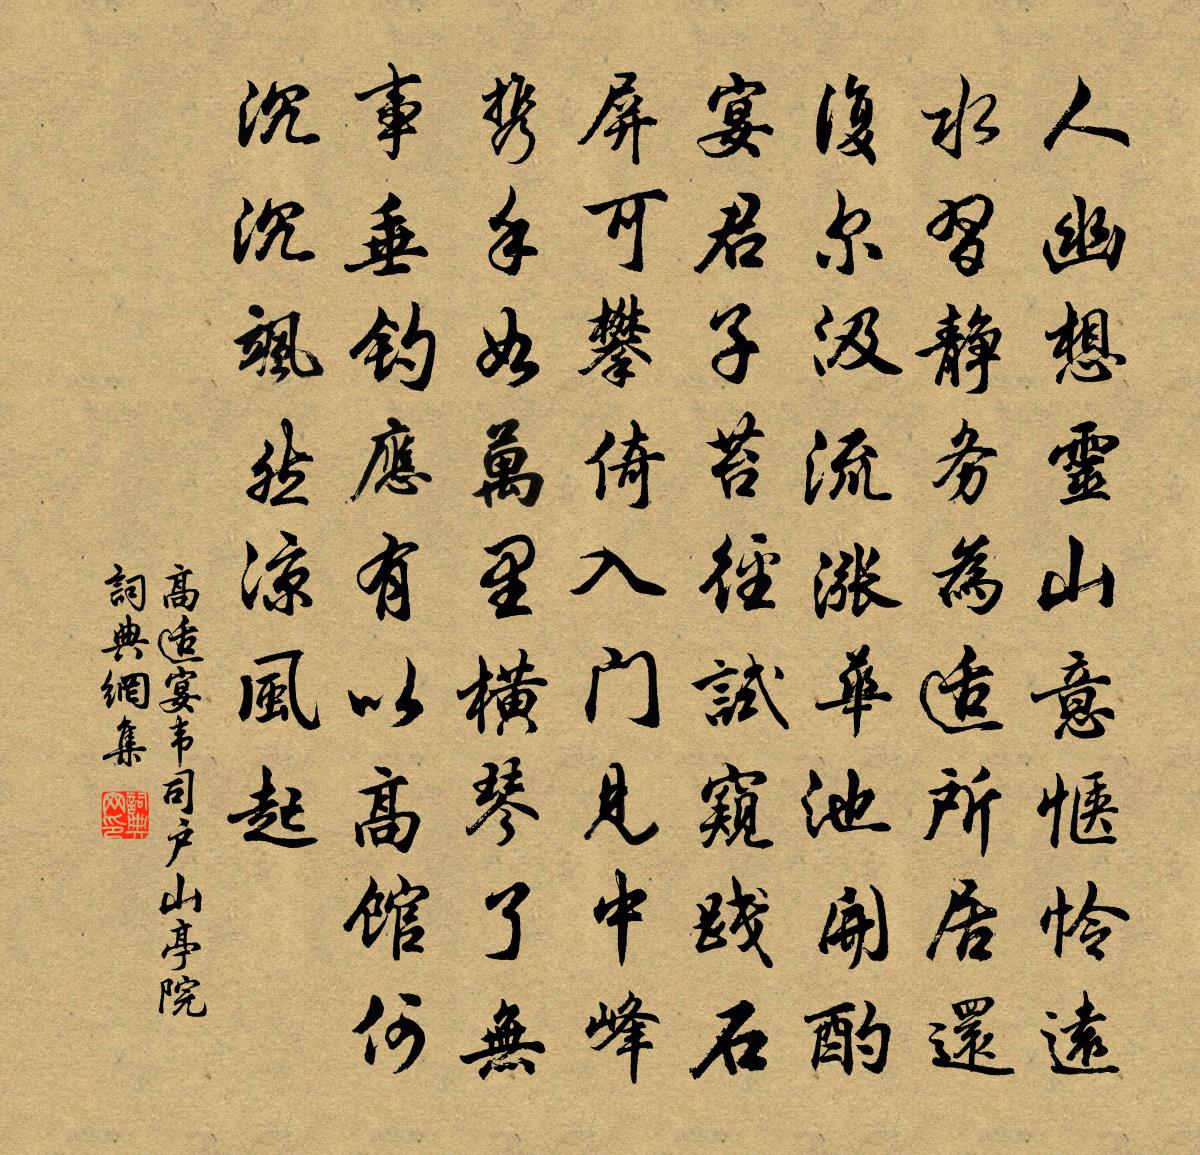 人幽想靈山意愜怜遠
水習靜务為适所居還
復尔汲流漲華池開酌
宴君子苔徑試窺踐石
屏可攀倚入门見中峰
携手如萬里橫琴了無
事垂钓應有以高館何
沉沉颯然凉風起
高适宴韦司户山亭院
詞典網集
詞典网印